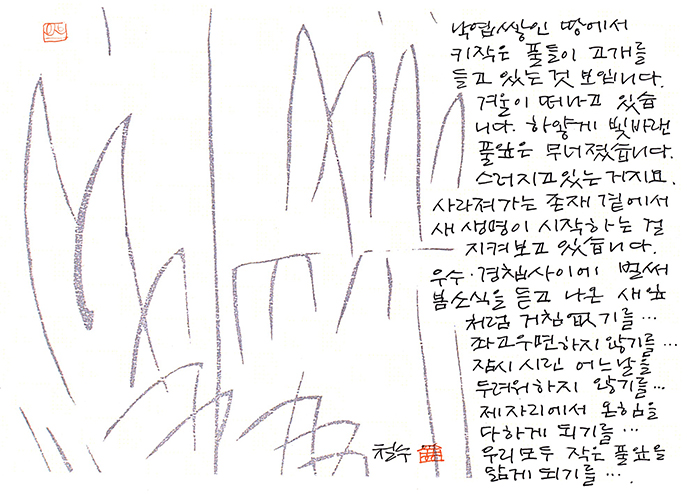 낙엽쌓인 땅에서
키작은 풀들이 고개를
들고 있는 것 보입니다.
겨울이 떠나고 있습
니다. 하얗게 빛바랜
풀잎은 무너졌습니다.
스러지고 있는 거지요.
사라져가는 존재 곁에서
새 생명이 시작하는 걸
지켜보고 있습니다.
우수·경칩사이에 벌써
봄소식을 듣고 나온 새잎
처럼 거침없기를…
좌고우면하지 않기를…
잠시 시린 어느날을
두려워하지 않기를…
제자리에서 온힘을
다하게 되기를…
우리모두 작은 풀잎을
닮게 되기를….
철수